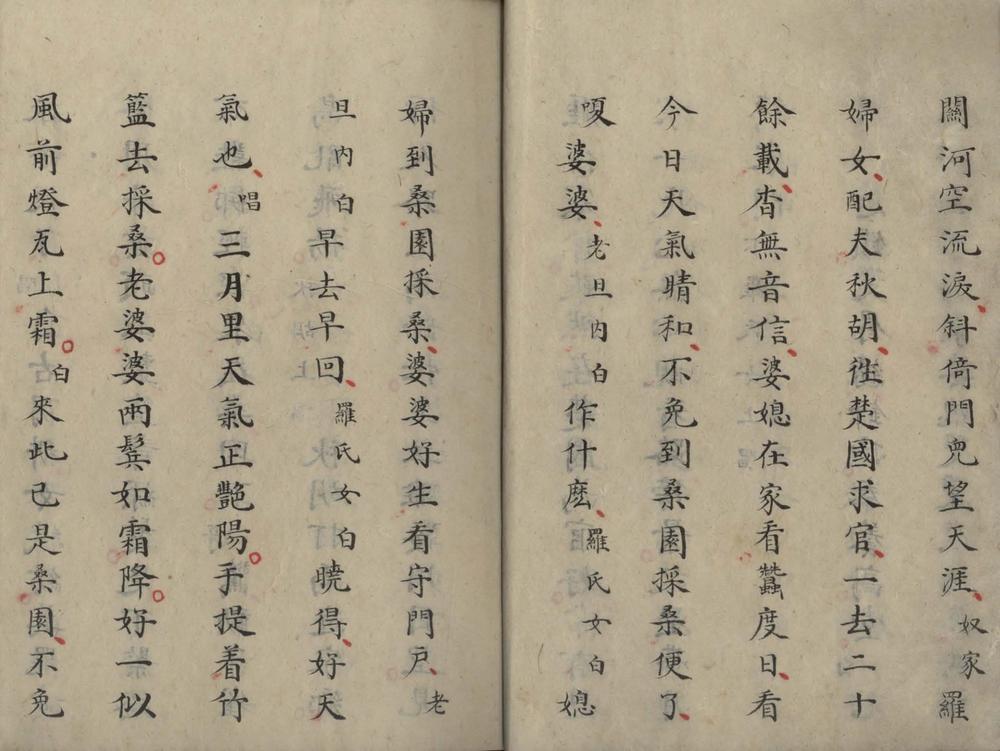 關河空流淚、斜倚門兒望天涯、奴家羅
婦女、配夫秋胡、徃楚國求官、一去二十
餘載、杳無音信、婆媳在家看蠶度日、看
今日天氣晴和、不免到桑園採桑便了、
嗄婆婆、老旦內白作什麽、羅氏女白媳
婦到桑園採桑、婆婆好生看守門戶、老
旦內白早去早回、羅氏女白曉得、好天
氣也、唱三月里天氣正艷陽。手提着竹
籃去採桑。老婆婆兩鬢如霜降。好一似
風前燈瓦上霜。白來此已是桑園、不免